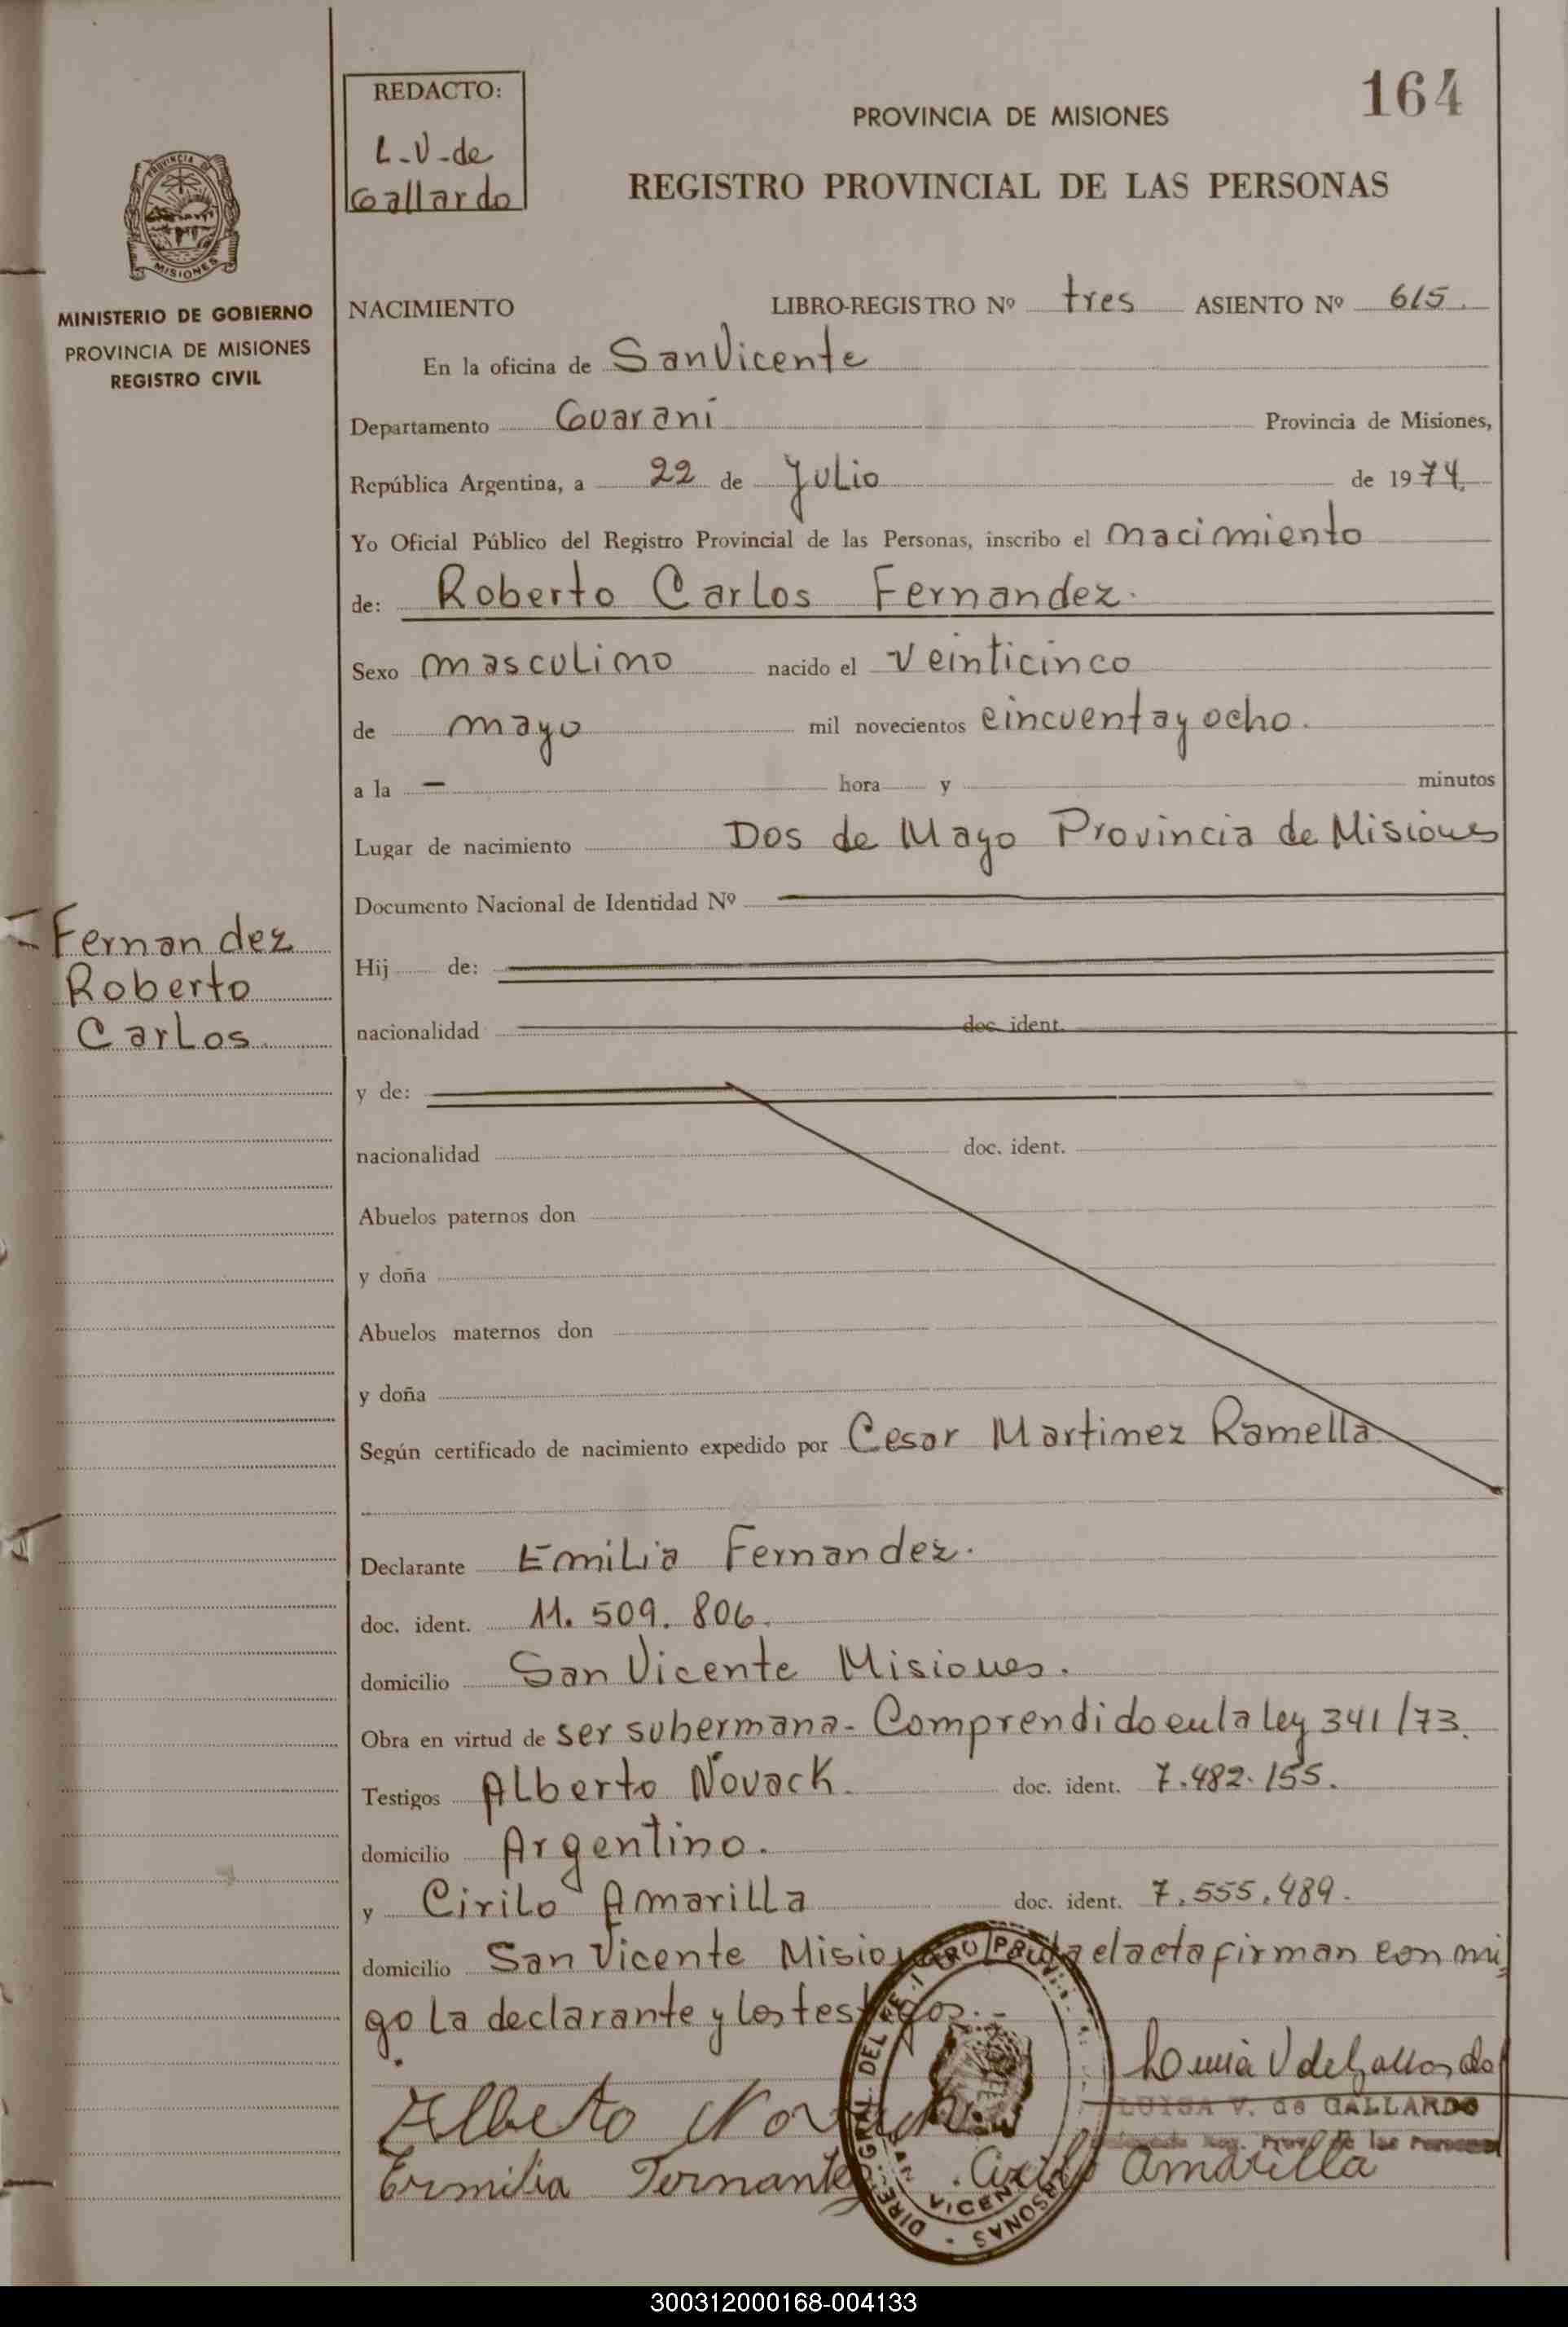 164
REDACTO:
L-V-de
Gallardo
PROVINCIA DE MISIONES
REGISTRO PROVINCIAL DE LAS PERSONAS
PROVINCIA DE
MISIONES
MINISTERIO DE GOBIERNO
PROVINCIA DE MISIONES
REGISTRO CIVIL
NACIMIENTO LIBRO-REGISTRO Nº tres ASIENTO Nº 615.
En la oficina de San Vicente
Departamento Guaraní Provincia de Misiones,
República Argentina, a 22 de Julio de 1974.
Yo Oficial Público del Registro Provincial de las Personas, inscribo el nacimiento
de: Roberto Carlos Fernandez.
Sexo masculino nacido el veinticinco
de mayo mil novecientos cincuenta y ocho.
a la — hora y minutos
Lugar de nacimiento Dos de Mayo Provincia de Misiones
Documento Nacional de Identidad Nº
Fernandez
Roberto
Carlos.
Hij de:
nacionalidad doc. ident.
y de:
nacionalidad doc. ident.
Abuelos paternos don
y doña
Abuelos maternos don
y doña
Según certificado de nacimiento expedido por Cesar Martinez Ramella
Declarante Emilia Fernandez.
doc. ident. 11.509.806.
domicilio San Vicente Misiones.
Obra en virtud de ser su hermana- Comprendido en la Ley 341/73.
Testigos Alberto Novack. doc. ident. 7.482.155.
domicilio Argentino.
y Cirilo Amarilla doc. ident. 7.555.489.
domicilio San Vicente Misiones el acta firman con mi
go la declarante y los testigos.-
Luisa V de Gallardo
LUISA V. de GALLARDO
Prov. de las Personas
Alberto Novack
Ermilia Fernantez Cirilo Amarilla
VICENTE
300312000168-004133